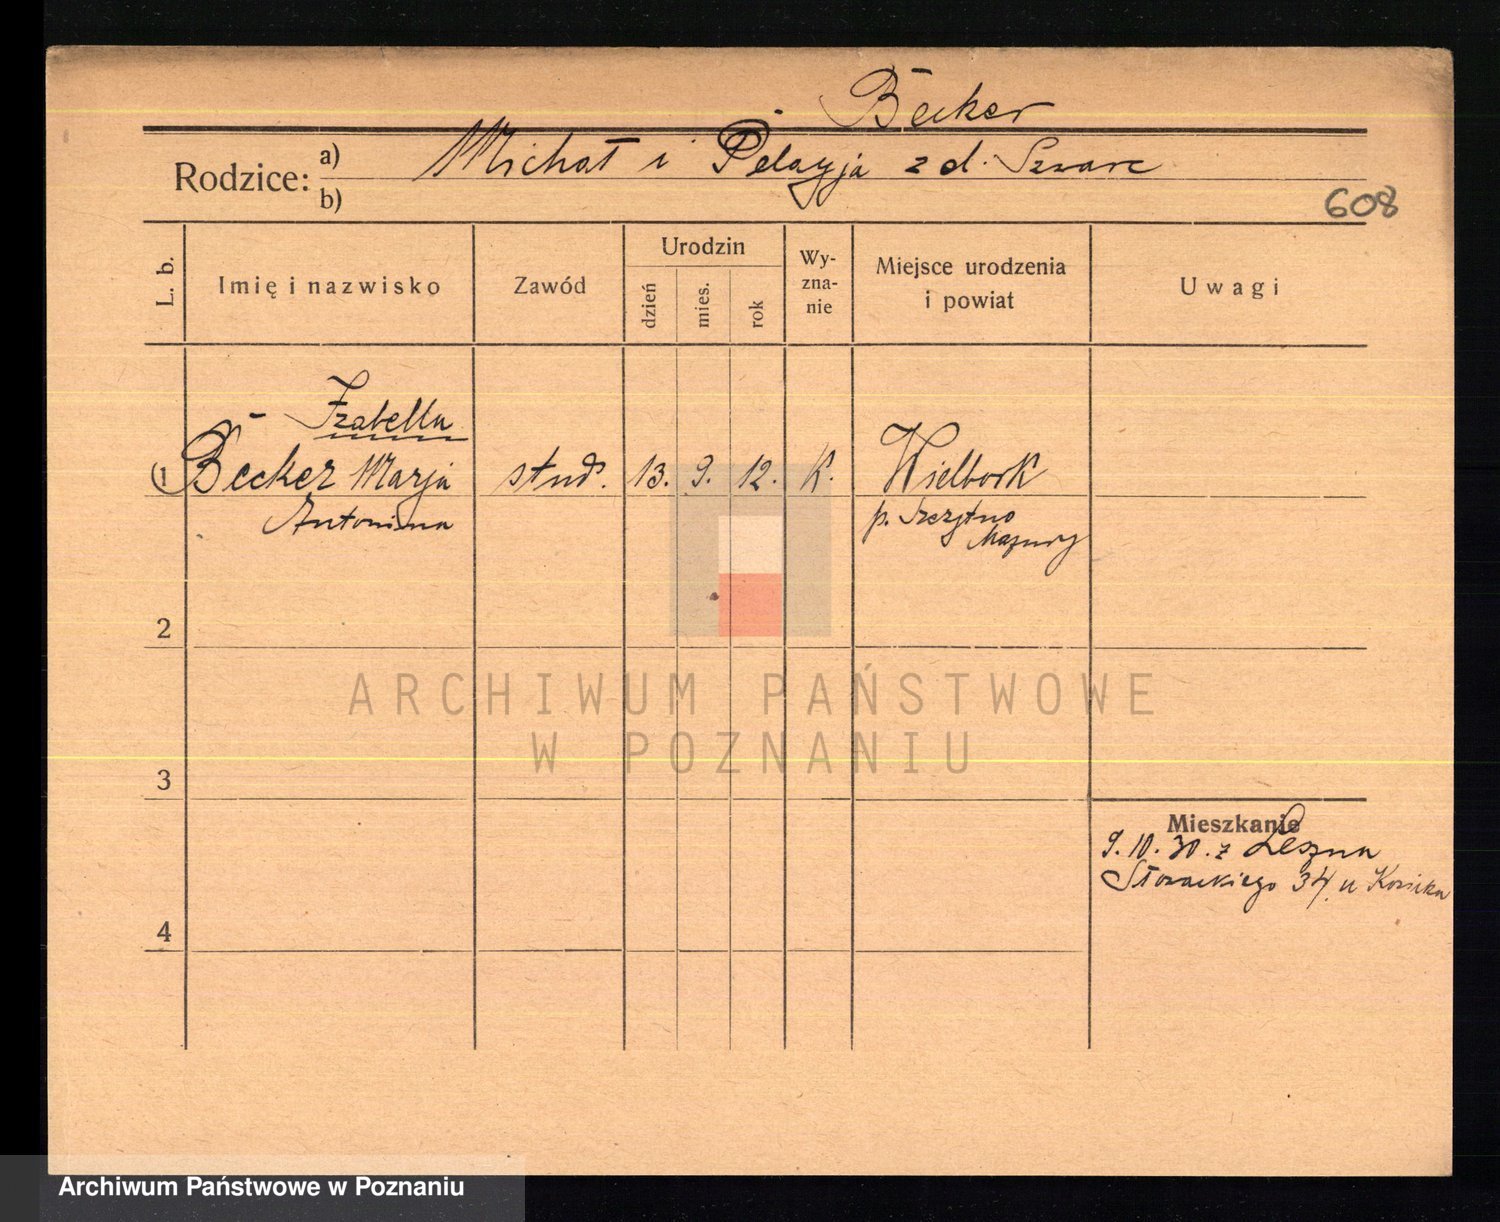 Becker
Rodzice: a) Michał i Pelagja z d. Szwarc
b)
608
L. b.
Imię i nazwisko
Zawód
Urodzin
dzień
mies.
rok
Wy-
zna-
nie
Miejsce urodzenia
i powiat
Uwagi
Izabella
1 Becker Marja
Antonina
stud. 13. 9. 12. K.
Wielbork
p. Szczytno
Mazury
2
3
4
ARCHIWUM PAŃSTWOWE
W POZNANIU
Mieszkanie
9.10.30. z Leszna
Słowackiego 34 u
Archiwum Państwowe w Poznaniu